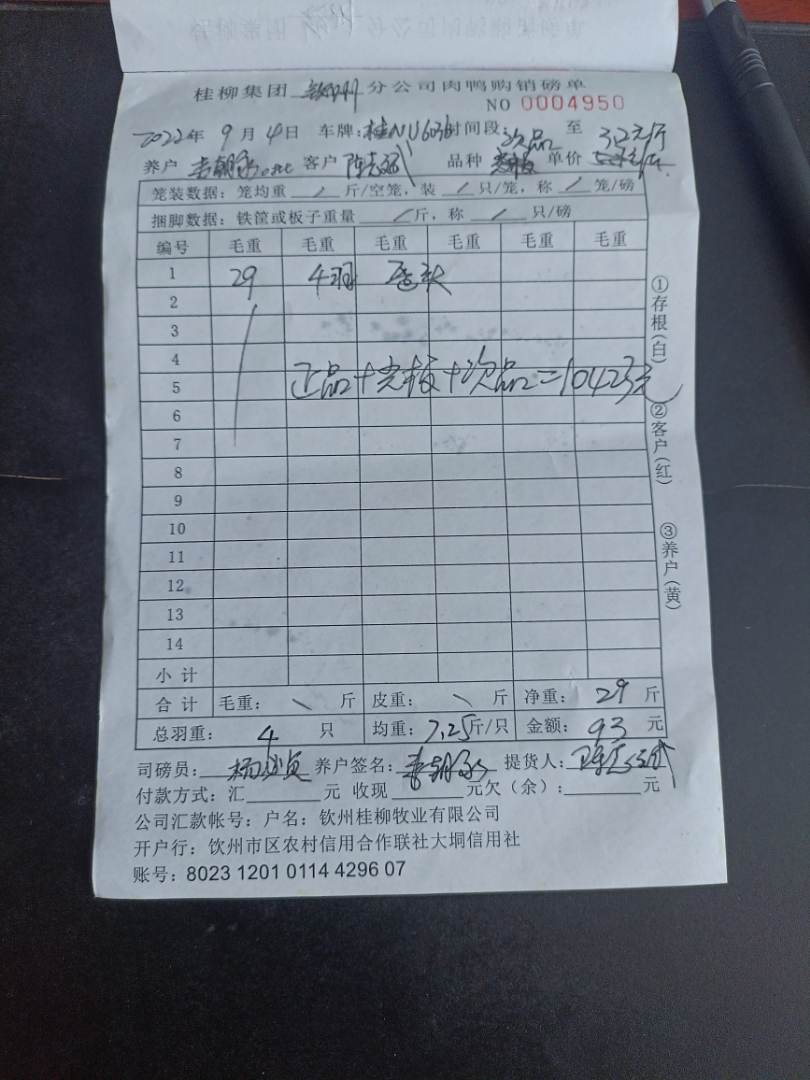 桂柳集团 钦州 分公司肉鸭购销磅单
NO 0004950
2022年 9月 4日 车牌:桂NU6036 时间段: 次品 至 3.2元/斤
养户 客户 品种 单价
笼装数据: 笼均重 / 斤/空笼, 装 / 只/笼, 称 / 笼/磅
捆脚数据: 铁筐或板子重量 / 斤, 称 / 只/磅
编号 毛重 毛重 毛重 毛重 毛重 毛重
1 29 4羽
2
3
4
正品+光板+次品=10423元
5
6
7
8
9
10
11
12
13
14
小计
合计 毛重: \ 斤 皮重: \ 斤 净重: 29 斤
总羽重: 4 只 均重: 7.25斤/只 金额: 93 元
司磅员: 养户签名: 提货人:
付款方式: 汇______元 收现______元欠(余):______元
公司汇款帐号: 户名: 钦州桂柳牧业有限公司
开户行: 钦州市区农村信用合作联社大垌信用社
账号: 8023 1201 0114 4296 07
①存根(白)
②客户(红)
③养户(黄)